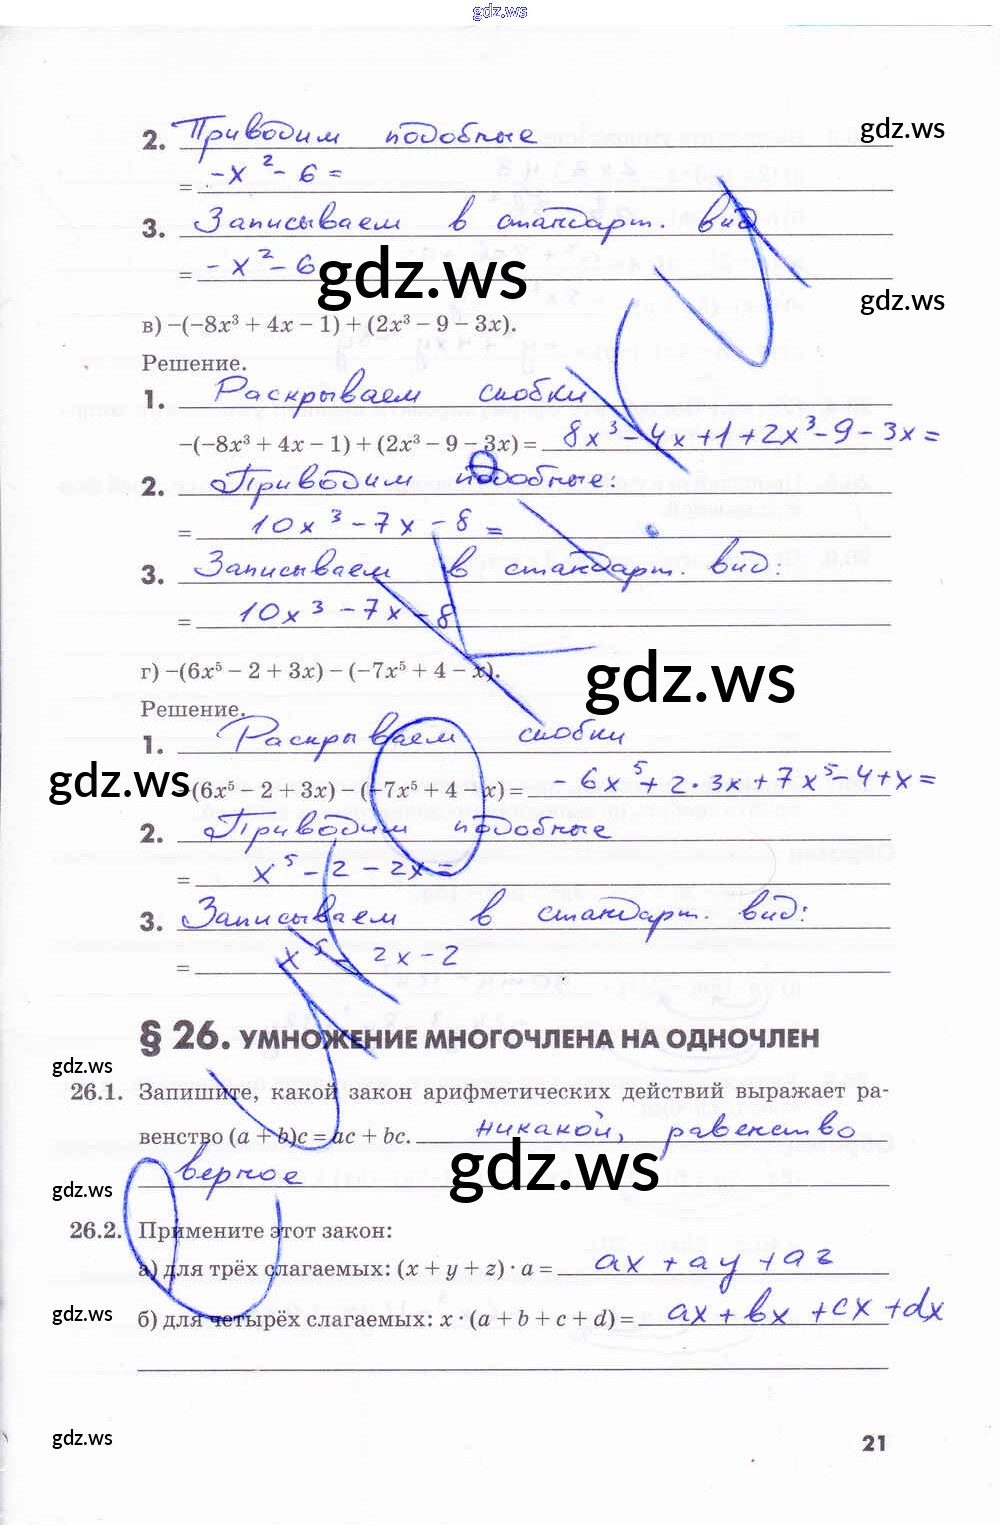 gdz.ws
2. Приводим подобные
gdz.ws
= -x² - 6 =
3. Записываем в стандарт. вид
= -x² - 6
gdz.ws
gdz.ws
в) –(–8x³ + 4x – 1) + (2x³ – 9 – 3x).
Решение.
1. Раскрываем скобки
–(–8x³ + 4x – 1) + (2x³ – 9 – 3x) = 8x³ - 4x + 1 + 2x³ - 9 - 3x =
2. Приводим подобные:
= 10x³ - 7x - 8 =
3. Записываем в стандарт. вид:
= 10x³ - 7x - 8
г) –(6x⁵ – 2 + 3x) – (–7x⁵ + 4 – x).
gdz.ws
Решение.
1. Раскрываем скобки
gdz.ws
–(6x⁵ – 2 + 3x) – (–7x⁵ + 4 – x) = - 6x⁵ + 2 · 3x + 7x⁵ - 4 + x =
2. Приводим подобные
= x⁵ - 2 - 2x =
3. Записываем в стандарт. вид:
= x⁵ - 2x - 2
§ 26. УМНОЖЕНИЕ МНОГОЧЛЕНА НА ОДНОЧЛЕН
gdz.ws
26.1. Запишите, какой закон арифметических действий выражает ра-
венство (a + b)c = ac + bc. никакой, равенство
верное
gdz.ws
gdz.ws
26.2. Примените этот закон:
а) для трёх слагаемых: (x + y + z) · a = ax + ay + az
б) для четырёх слагаемых: x · (a + b + c + d) = ax + bx + cx + dx
gdz.ws
gdz.ws
21